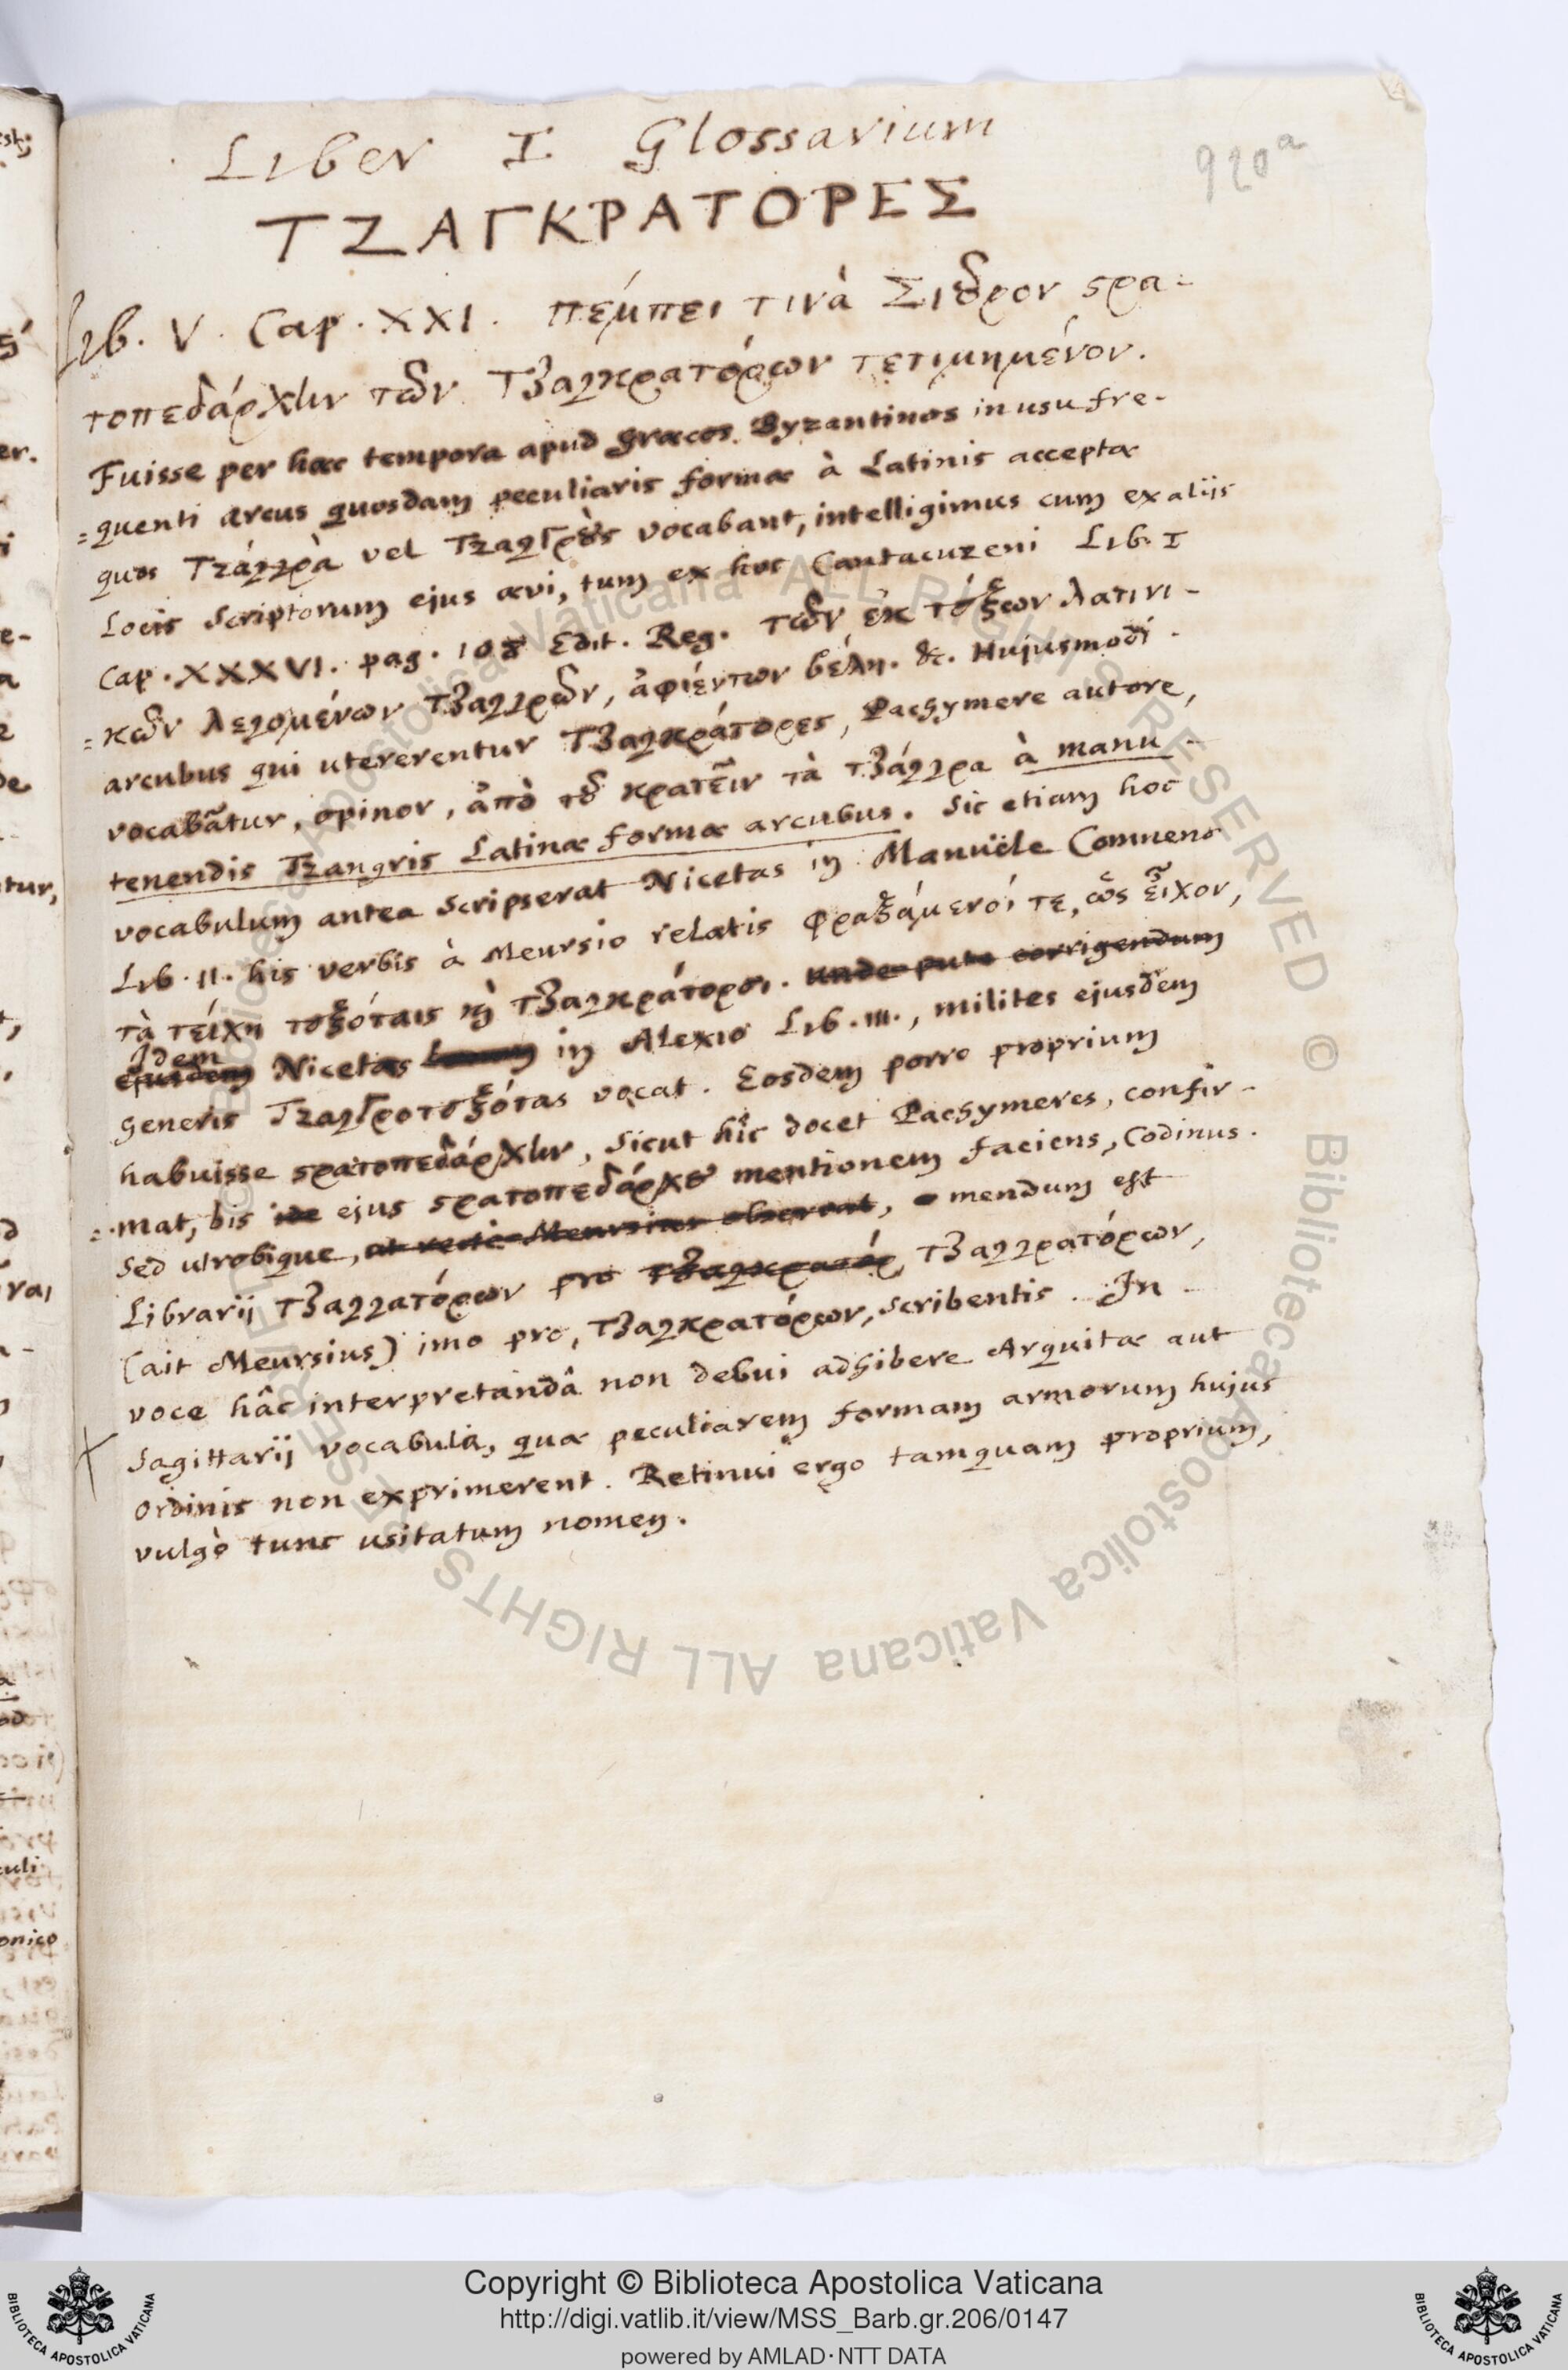 Liber I Glossarium
920a
ΤΖΑΓΚΡΑΤΟΡΕΣ
Lib. V. Cap. XXI. πέμπει τινὰ Σιȣ͂ρον ϛρα-
τοπεδάρχην τῶν Τζαγκρατόρων τετιμημένον.
Fuisse per hæc tempora apud Græcos Byzantinos in usu fre-
=quenti arcus quosdam peculiaris formæ à Latinis acceptæ
quos Τζάγγρὰ vel Τζαγγρȣ̀ς vocabant, intelligimus cum ex aliis
Locis Scriptorum ejus ævi, tum ex hoc Cantacuzeni Lib. I
Cap. XXXVI. pag. 108 Edit. Reg. τῶν ἐκ τόξων λατινι-
=κῶν λεγομένων τζαγγρῶν, ἀφιέντων βέλη. &c. Hujusmodi
arcubus qui utererentur Τζαγκράτορες, Pachymere autore,
vocabãtur, opinor, ἀπὸ τȣ͂ κρατεῖν τὰ τζάγγρα à manu
tenendis Tzangris Latinæ formæ arcubus. Sic etiam hoc
vocabulum antea scripserat Nicetas in Manuële Comneno
Lib. II. his verbis à Meursio relatis φραξάμενοί τε, ὡς εἶχον,
τὰ τείχη τοξόταις καὶ τζαγκράτορσι. unde puto corrigendum
Idem
ejusdem Nicetas in Alexio Lib. III., milites ejusdem
generis Τζαγγροτοξότας vocat. Eosdem porro proprium
habuisse ϛρατοπεδάρχην, sicut hîc docet Pachymeres, confir-
=mat, bis ejus ϛρατοπεδάρχȣ mentionem faciens, Codinus.
Sed utrobique, ut recte Meursius observat, mendum est
Librarij τζαγγατόρων pro τζαγκρατόρ τζαγγρατόρων,
(ait Meursius) imo pro, τζαγκρατόρων, scribentis. In
voce hâc interpretandâ non debui adhibere Arquitæ aut
Sagittarij vocabula, quæ peculiarem formam armorum hujus
Ordinis non exprimerent. Retinui ergo tamquam proprium,
vulgò tunc usitatum nomen.
Copyright © Biblioteca Apostolica Vaticana
http://digi.vatlib.it/view/MSS_Barb.gr.206/0147
powered by AMLAD·NTT DATA